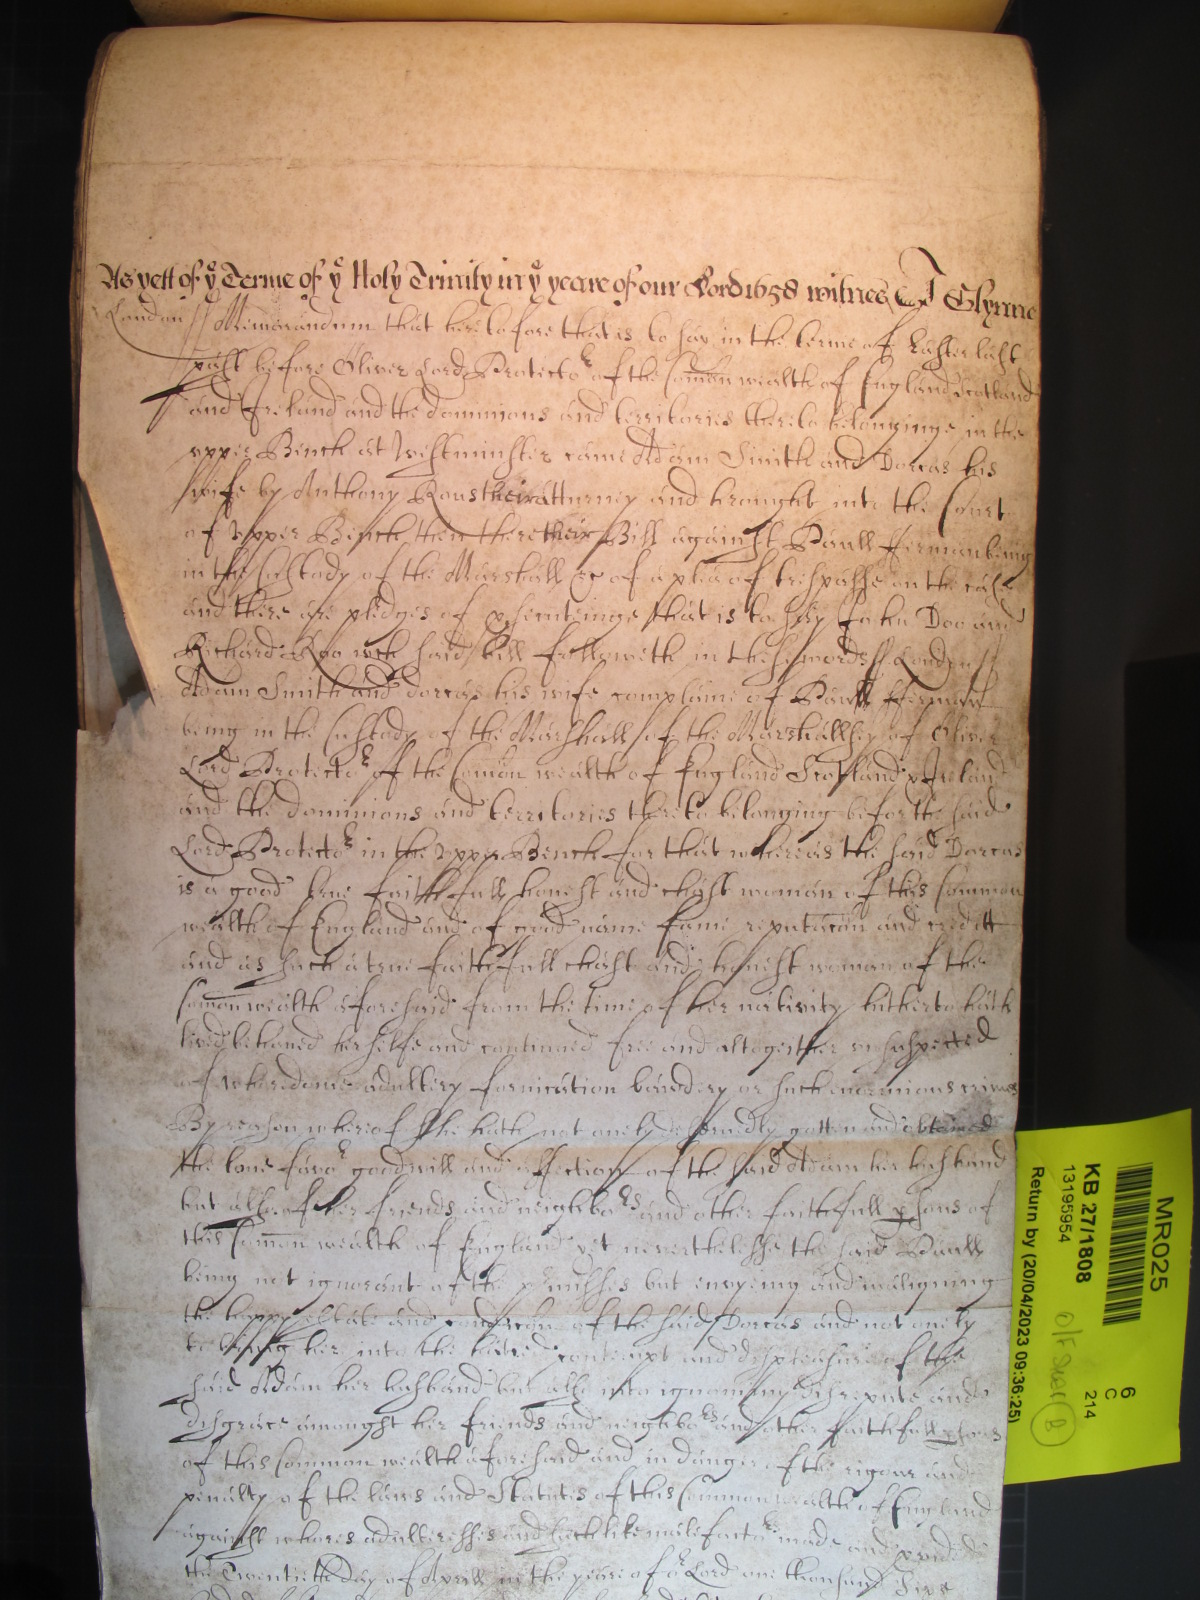 As yett of yͤ Terme of yͤ Holy Trinity in yͤ yeare of our Lord 1658 witnes J Glynne
London // Memorandum that heretofore that is to say in the terme of Easter last
past before Oliver Lord Protectoʳ of the Comon wealth of England Scotland
and Ireland and the dominions and territories thereto belonginge in the
upper Bench at Westminster came Adam Smith and Dorcas his
wife by Anthony Rous their atturney and brought into the Court
of Upper Bench then there their Bill against Pawll fferman being
in the Custody of the Marshall &c of a plea of trespasse on the case
and there are pledges of psecuteinge that is to say John Doo and
Richard Roo wch said bill followeth in these words // London //
Adam Smith and Dorcas his wife complaine of Pawll fferman
being in the Custody of the Marshall of the Marshallsey of Oliver
Lord Protectoʳ of the Comon wealth of England Scotland & Ireland
and the dominions and territories thereto belonging before the said
Lord Protectoʳ in the Upper Bench for that whereas the said Dorcas
is a good true faithfull honest and chast woman of this Common
wealth of England and of good name fame reputacon and creditt
and as such a true faithfull chast and honest woman of the
Comon wealth aforesaid from the time of her nativity hitherto hath
lived behaved her selfe and continued free and altogeither unsuspected
of whoredome adultery fornication bawdery or such enormious crimes
By reason whereof she hath not onely deservedly gotten and obtained
the love favoʳ goodwill and affection of the said Adam her husband
but also of her friends and neighboʳˢ and other faithfull psons of
this Comon wealth of England yet neverthelesse the said Pawll
being not ignorant of the pmisses but envyeing and maligning
the happy estate and condicon of the said Dorcas and not onely
to bring her into the hatred contempt and displeasure of the
said Adam her husband but also into ignominy disrepute and
disgrace amongst her friends and neighboʳˢ and other faithfull psons
of this Common wealth aforesaid and in danger of the rigour and
penalty of the laws and Statutes of this Common wealth of England
against whores adulteresses and such like malefactoʳˢ made and pvided
the Twentieth day of Aprill in the yeare of oʳ Lord one thousand Six
MR025
6
C
214
KB 27/1808
13195954
Return by (20/04/2023 09:36:25)
B